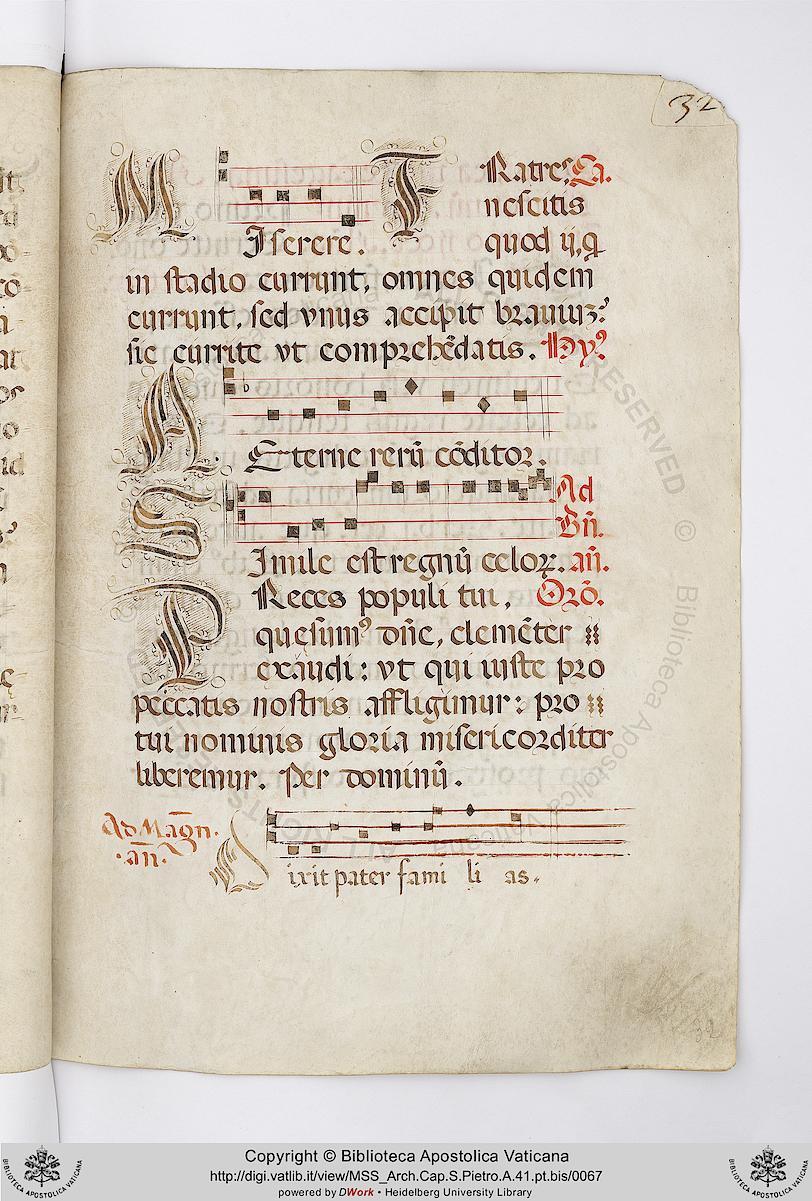 32
M
F Ratres, Ca.
nescitis
Iserere. quod ij, q
in stadio currunt, omnes quidem
currunt, sed vnus accipit brauiuz:
sic currite vt comprehēdatis. Hyꝰ
A
Eterne rerū cōditor.
S Ad
Bn̄.
Imile est regnū celoꝝ. an̄.
P Reces populi tui, Orō.
quesumꝰ dn̄e, clemēter
exaudi: vt qui iuste pro
peccatis nostris affligimur: pro
tui nominis gloria misericorditer
liberemur. Per dominū.
Ad Magn̄.
.an̄.
D ixit pater fami li as.
32
Copyright © Biblioteca Apostolica Vaticana
http://digi.vatlib.it/view/MSS_Arch.Cap.S.Pietro.A.41.pt.bis/0067
powered by DWork • Heidelberg University Library
BIBLIOTECA APOSTOLICA VATICANA
BIBLIOTECA APOSTOLICA VATICANA